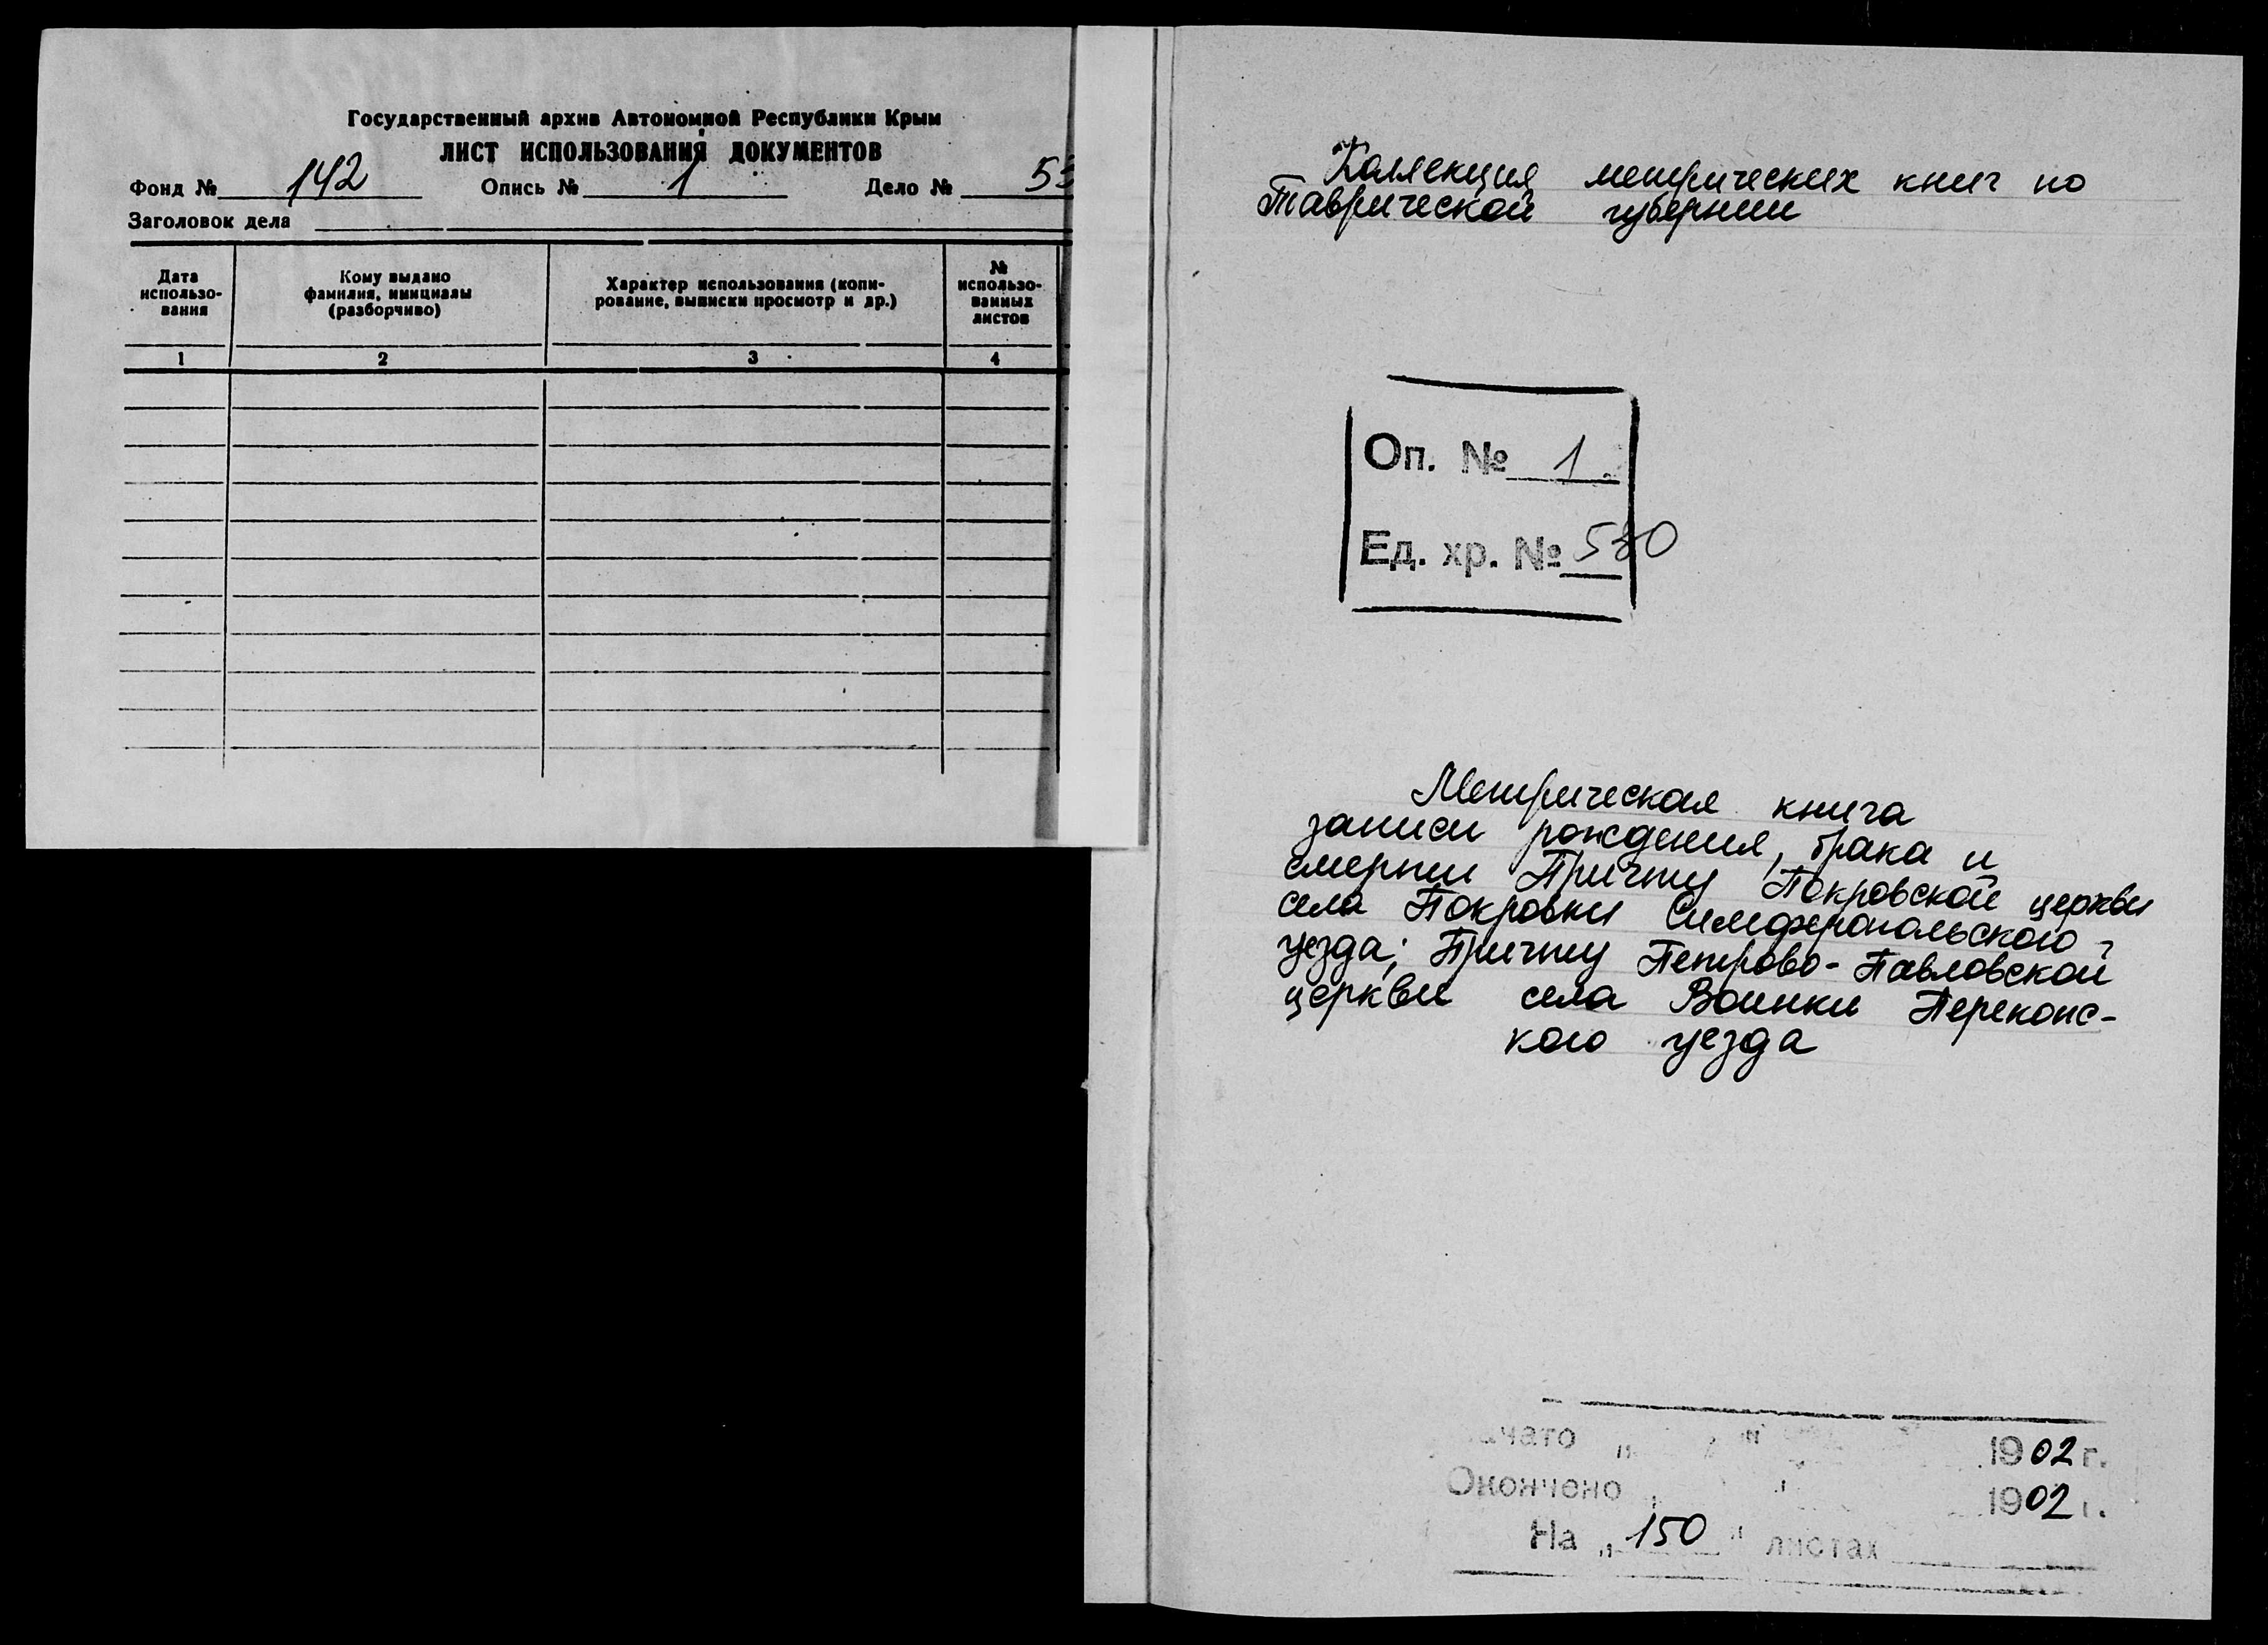 Государственный архив Автономной Республики Крым
ЛИСТ ИСПОЛЬЗОВАНИЯ ДОКУМЕНТОВ
Фонд № 142 Опись № 1 Дело № 53
Заголовок дела
Дата использо-вания
Кому выдано фамилия, инициалы (разборчиво)
Характер использования (копи-рование, выписки просмотр и др.)
№ использо-ванных листов
1 2 3 4
Коллекция метрических книг по
Таврической губернии
Оп. № 1
Ед. хр. № 530
Метрическая книга
записи рождения, брака и
смерти Причту Покровской церкви
села Покровки Симферопольского
уезда; Причту Петрово-Павловской
церкви села Воинки Перекопс-
кого уезда
чато " " 1902 г.
Окончено 1902 г.
На „150" листах